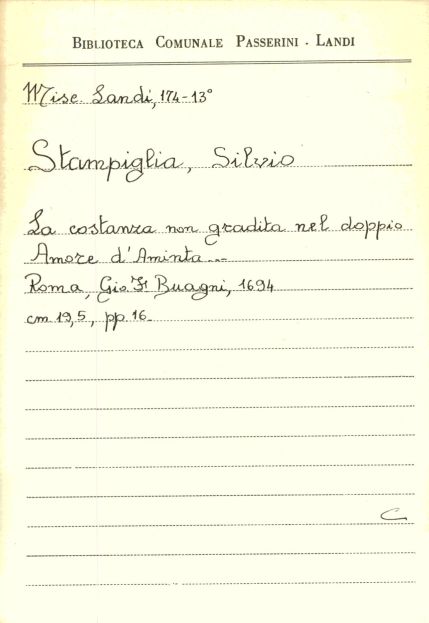 BIBLIOTECA COMUNALE PASSERINI - LANDI
Misc. Landi, 174-13°
Stampiglia, Silvio
La costanza non gradita nel doppio
Amore d'Aminta...
Roma, Gio. Fr Buagni, 1694
cm 19,5, pp. 16.
C